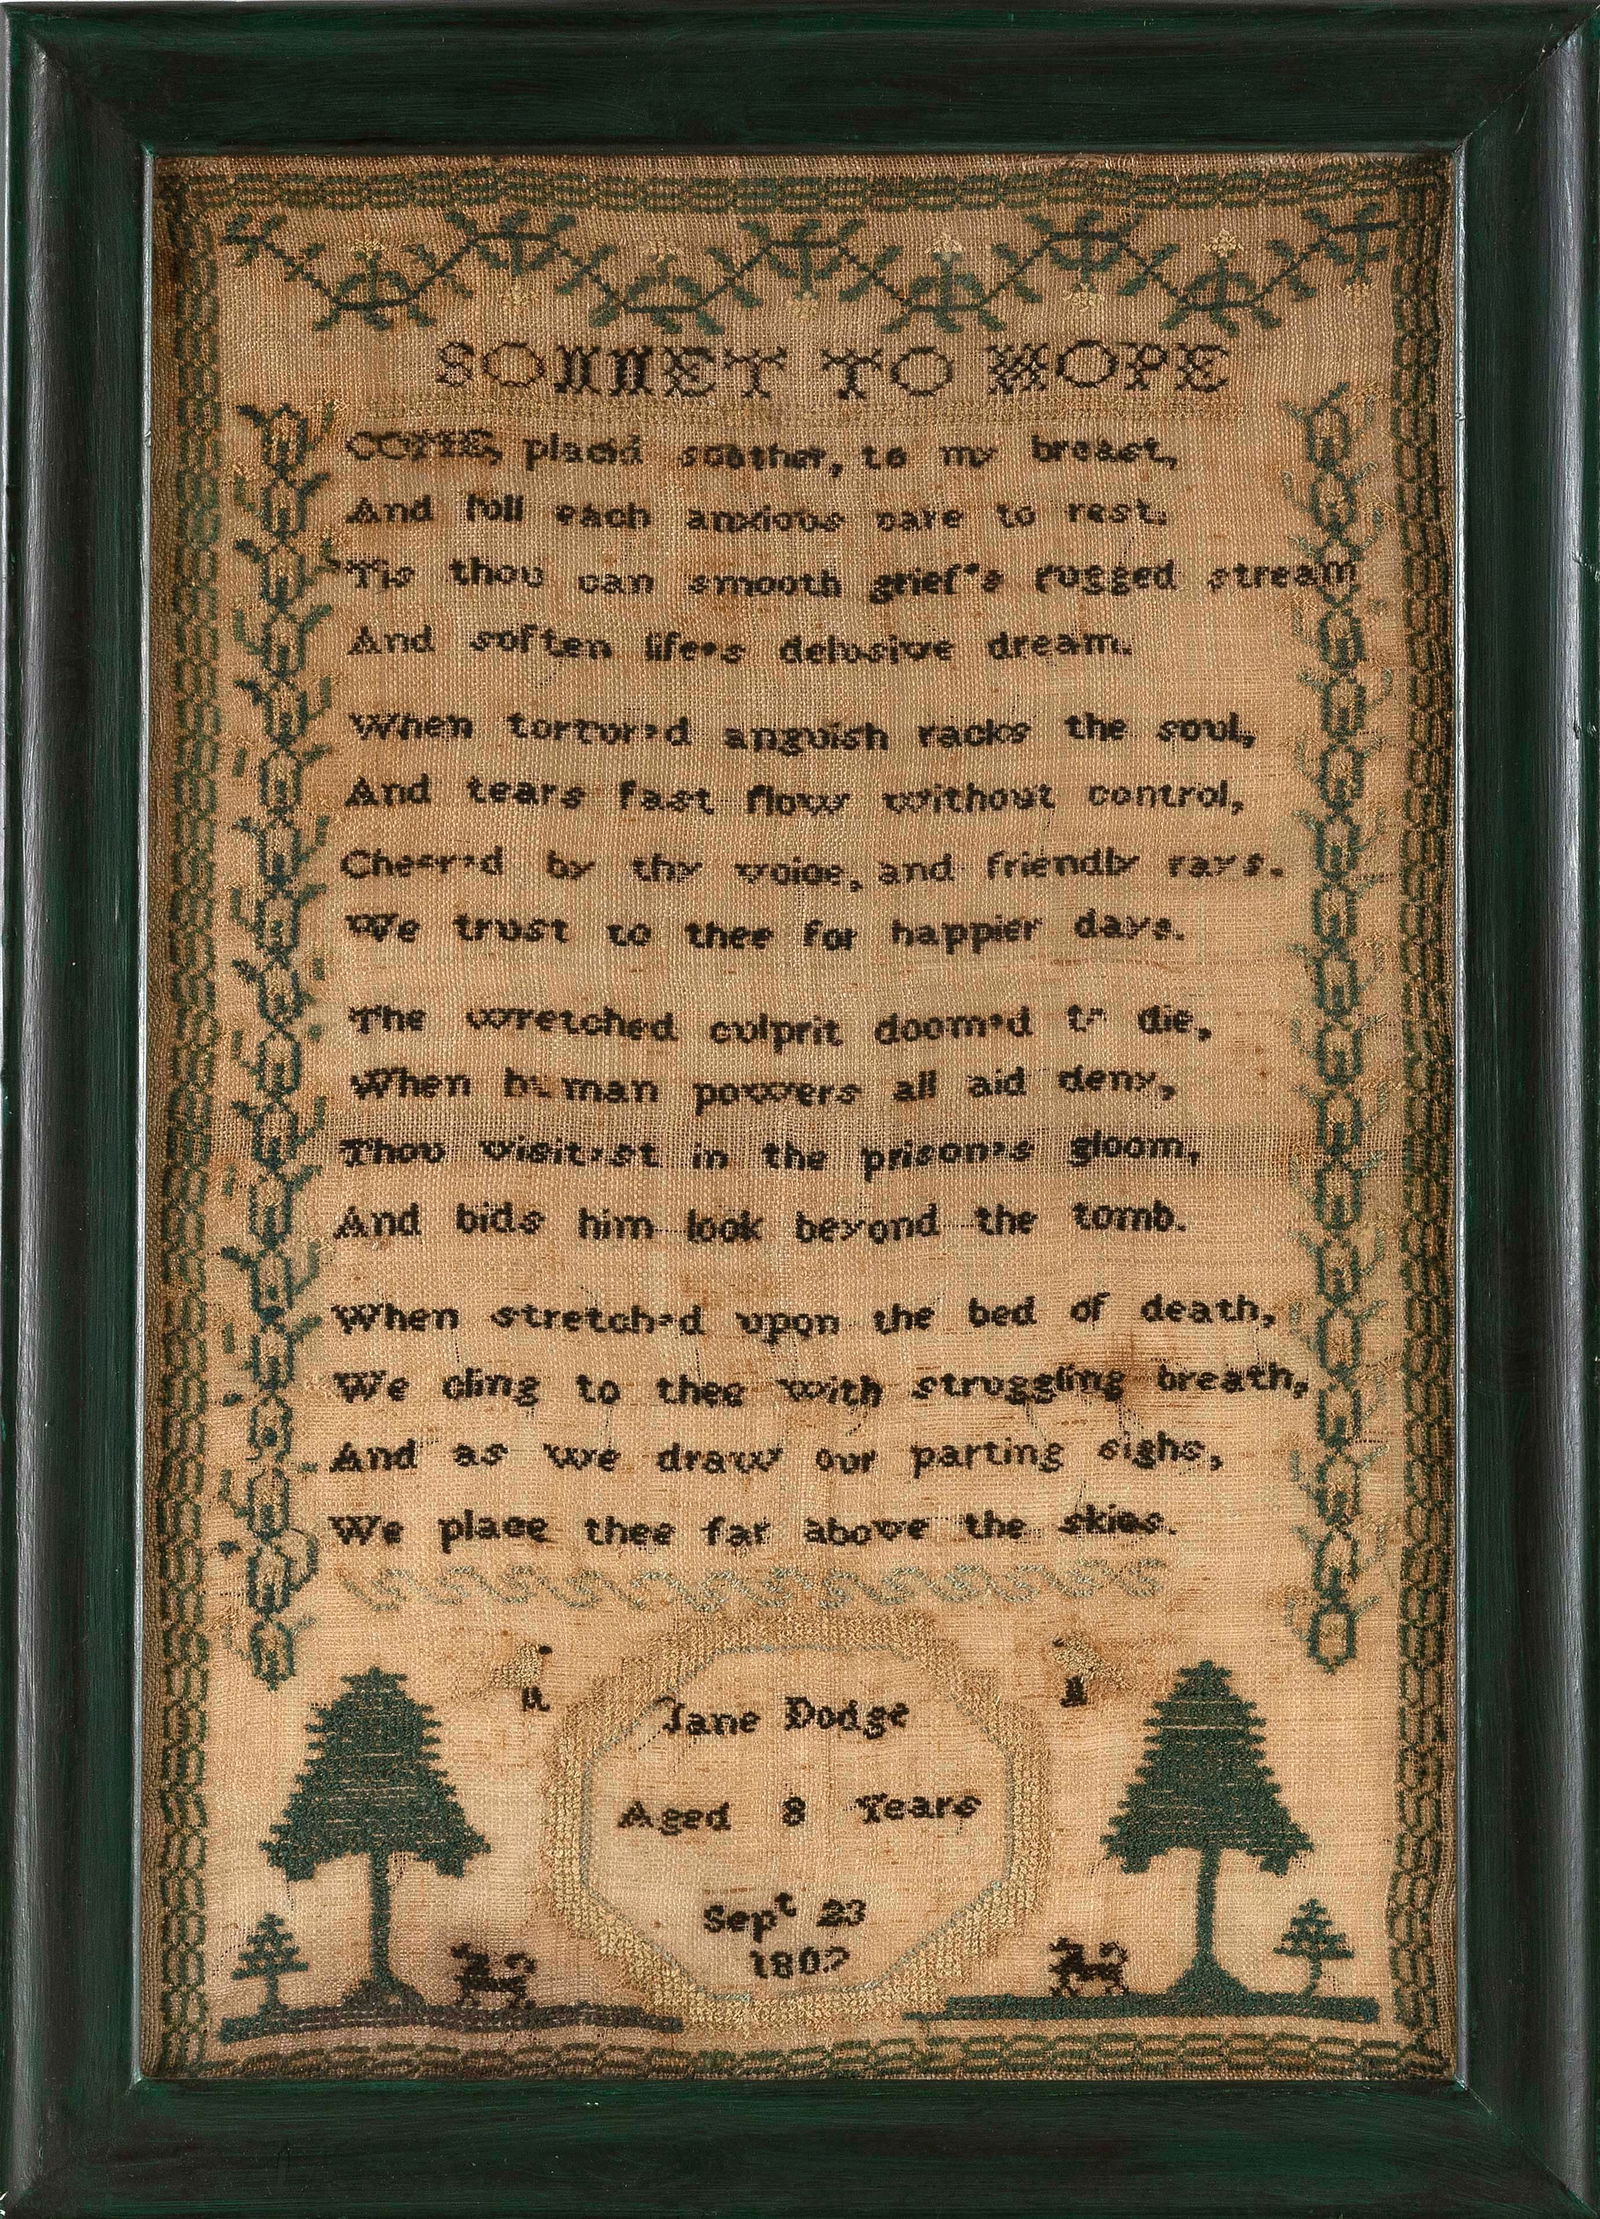 SONNET TO HOPE
COME, placid soother, to my breast,
And lull each anxious care to rest.
'Tis thou can smooth grief's rugged stream
And soften life's delusive dream.
When tortur'd anguish racks the soul,
And tears fast flow without control,
Cheer'd by thy voice, and friendly rays.
We trust to thee for happier days.
The wretched culprit doom'd to die,
When human powers all aid deny,
Thou visit'st in the prison's gloom,
And bids him look beyond the tomb.
When stretch'd upon the bed of death,
We cling to thee with struggling breath,
And as we draw our parting sighs,
We place thee far above the skies.
Jane Dodge
Aged 8 Years
Sept 23
1802